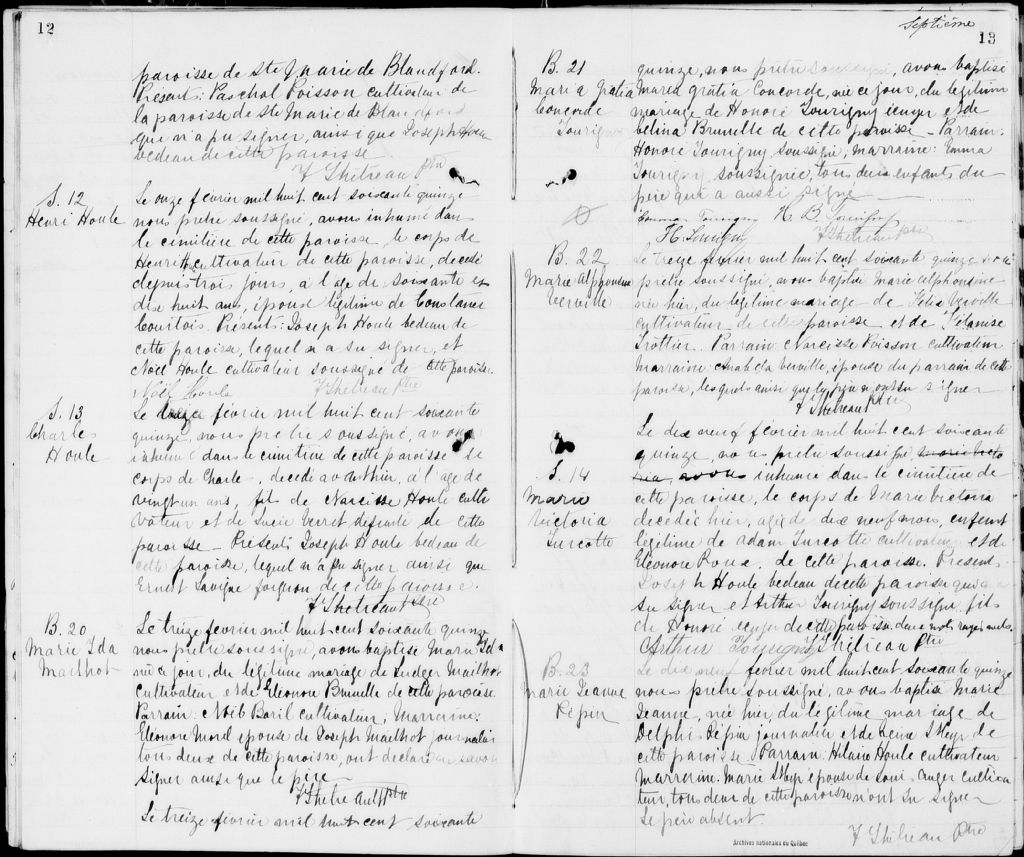 12
paroisse de Ste Marie de Blandford.
Présents: Paschal Poisson cultivateur de
la paroisse de Ste Marie de Blandford
qui n'a pu signer, ainsi que Joseph Houle
bedeau de cette paroisse
F Thétreau ptre
S. 12
Henri Houle
Le onze février mil huit cent soixante quinze
nous prêtre soussigné, avons inhumé dans
le cimitière de cette paroisse, le corps de
Henri H. cultivateur de cette paroisse, décédé
depuis trois jours, à l'age de soixante et
dix huit ans, époux légitime de Constance
Courtois. Présents: Joseph Houle bedeau de
cette paroisse, lequel n'a su signer, et
Noël Houle cultivateur soussigné de cette paroisse.
Noël Houle F Thétreau Ptre
S. 13
Charles
Houle
Le treize février mil huit cent soixante
quinze, nous prêtre soussigné, avons
inhumé dans le cimitière de cette paroisse le
corps de Charles, décédé avant hier, à l'age de
vingt un ans, fils de Narcisse Houle culti
vateur et de Lucie Verret défunte de cette
paroisse – Présents Joseph Houle bedeau de
cette paroisse, lequel n'a pu signer ainsi que
Ernest Lavigne forgeron de cette paroisse.
F Thétreau Ptre
B. 20
Marie Ida
Mailhot
Le treize février mil huit cent soixante quinze
nous prêtre soussigné, avons baptisé Marie Ida
née ce jour, du légitime mariage de Ludger Mailhot
cultivateur et de Eléonore Brunelle de cette paroisse
Parrain: Noël Baril cultivateur, Marraine:
Eléonore Morel épouse de Joseph Mailhot journalier
tous deux de cette paroisse, ont déclaré ne savoir
signer ainsi que le père –
F Thétreault ptre
Le treize février mil huit cent soixante
Septième
13
B. 21
Maria Gratia
Concorde
Tourigny
quinze, nous prêtre soussigné, avons baptisé
Maria Gratia Concorde, née ce jour, du légitime
mariage de Honoré Tourigny écuyer et de
Célina Brunelle de cette paroisse – Parrain:
Honoré Tourigny, soussigné, Marraine: Emma
Tourigny, soussignée, tous deux enfants du
père qui a aussi signé –
Emma Tourigny H. B. Tourigny
H. Tourigny F Thétreau Ptre
B. 22
Marie Alphonsine
Verville
Le treize février mil huit cent soixante quinze nous
prêtre soussigné, avons baptisé Marie Alphonsine
née hier, du légitime mariage de Félix Verville
cultivateur de cette paroisse et de Mélanise
Trottier. Parrain: Narcisse Poisson cultivateur
Marraine: Anabela Verville, épouse du parrain de cette
paroisse, lesquels ainsi que le père n'ont su signer
F Thétreau Ptre
S. 14
Marie
Victoria
Turcotte
Le dix neuf février mil huit cent soixante
quinze, nous prêtre soussigné, Marie Victo
ria avons inhumé dans le cimitière de
cette paroisse, le corps de Marie Victoria
décédée hier, agée de dix neuf mois, enfant
légitime de Adam Turcotte cultivateur et de
Eléonore Roux, de cette paroisse. Présents
Joseph Houle bedeau de cette paroisse qui n'a
su signer et Arthur Tourigny soussigné, fils
de Honoré écuyer de cette paroisse. deux mots rayés nuls.
Arthur Tourigny F Thétreau Ptre
B. 23
Marie Jeanne
Pépin
Le dix neuf février mil huit cent soixante quinze
nous prêtre soussigné, avons baptisé Marie
Jeanne, née hier, du légitime mariage de
Delphis Pépin journalier et de
cette paroisse Parrain: Hilaire Houle cultivateur
Marraine: Marie épouse de Louis Auger cultiva
teur, tous deux de cette paroisse n'ont su signer
Le père absent.
F Thétreau Ptre
Archives nationales du Québec